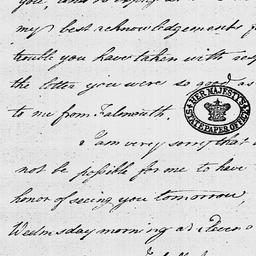 you, and
my best acknowledgements f
trouble you have taken with resp
the letter you were so good as
to me from Falmouth.
HER MAJESTY'S STATE PAPER OFFICE
I am very sorry that it
not be possible for me to have
honor of seeing you tomorrow,
Wednesday morning at eleven o